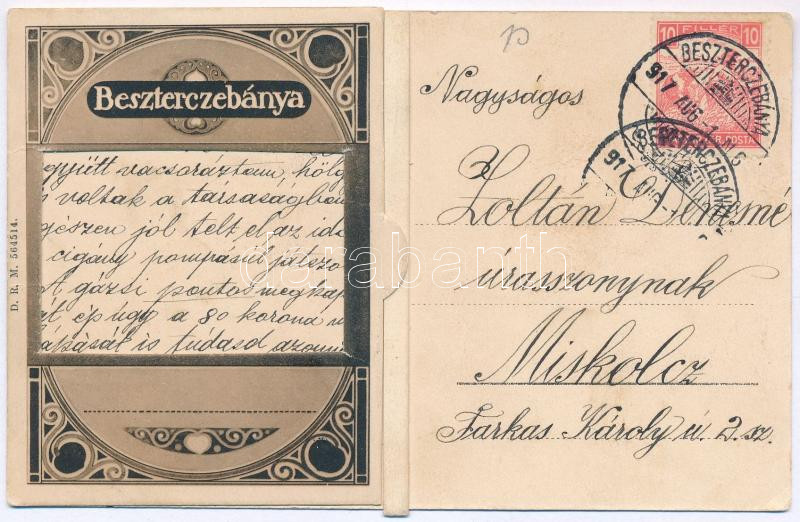 D. R. M. 564514.
Beszterczebánya
együtt vacsoráztam, hölg
voltak a társaságban
egészen jól telt el az idő
cigány pompásan játszo
A gázsi pontos megkap
át ép úgy a 80 korona
is tudasd azonn
10 FILLÉR 10
R. POSTA
BESZTERCZEBÁNYA
917 AUG
BESZTERCZEBÁNYA
917 AUG
Nagyságos
Zoltán Dénesné
úrasszonynak
Miskolcz
Farkas Károly ú 2. sz.
darabanth